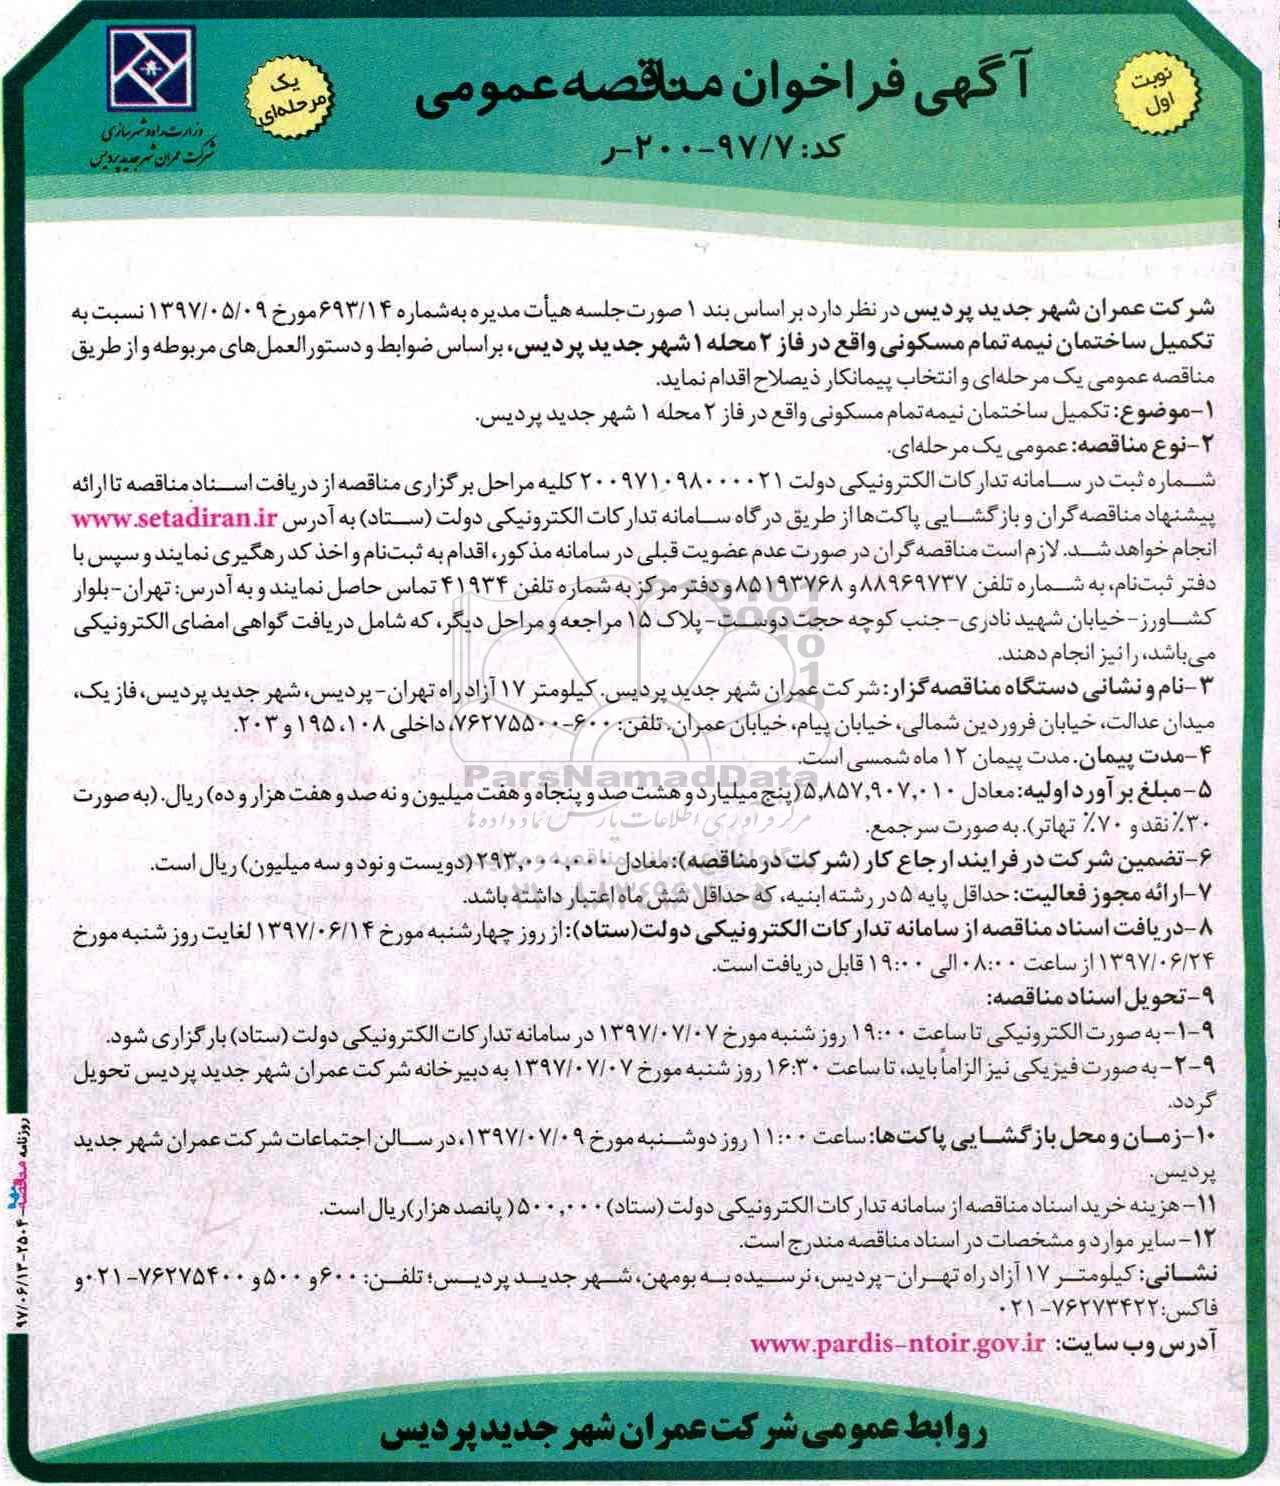 نوبت
اول
آگهی فراخوان مناقصه عمومی
کد: ۹۷/۷-۲۰۰-ر
یک
مرحله‌ای
وزارت راه و شهرسازی
شرکت عمران شهر جدید پردیس
شرکت عمران شهر جدید پردیس در نظر دارد بر اساس بند ۱ صورت‌جلسه هیأت مدیره به‌شماره ۶۹۳/۱۴ مورخ ۱۳۹۷/۰۵/۰۹ نسبت به
تکمیل ساختمان نیمه تمام مسکونی واقع در فاز ۲ محله ۱ شهر جدید پردیس، براساس ضوابط و دستورالعمل‌های مربوطه و از طریق
مناقصه عمومی یک مرحله‌ای و انتخاب پیمانکار ذیصلاح اقدام نماید.
۱-موضوع: تکمیل ساختمان نیمه‌تمام مسکونی واقع در فاز ۲ محله ۱ شهر جدید پردیس.
۲-نوع مناقصه: عمومی یک مرحله‌ای.
شماره ثبت در سامانه تدارکات الکترونیکی دولت ۲۰۰۹۷۱۰۹۸۰۰۰۰۲۱ کلیه مراحل برگزاری مناقصه از دریافت اسناد مناقصه تا ارائه
پیشنهاد مناقصه‌گران و بازگشایی پاکت‌ها از طریق درگاه سامانه تدارکات الکترونیکی دولت (ستاد) به آدرس www.setadiran.ir
انجام خواهد شد. لازم است مناقصه‌گران در صورت عدم عضویت قبلی در سامانه مذکور، اقدام به ثبت‌نام و اخذ کد رهگیری نمایند و سپس با
دفتر ثبت‌نام، به شماره تلفن ۸۸۹۶۹۷۳۷ و ۸۵۱۹۳۷۶۸ و دفتر مرکز به شماره تلفن ۴۱۹۳۴ تماس حاصل نمایند و به آدرس: تهران-بلوار
کشاورز-خیابان شهید نادری-جنب کوچه حجت دوست-پلاک ۱۵ مراجعه و مراحل دیگر، که شامل دریافت گواهی امضای الکترونیکی
می‌باشد، را نیز انجام دهند.
۳-نام و نشانی دستگاه مناقصه‌گزار: شرکت عمران شهر جدید پردیس. کیلومتر ۱۷ آزادراه تهران-پردیس، شهر جدید پردیس، فاز یک،
میدان عدالت، خیابان فروردین شمالی، خیابان پیام، خیابان عمران. تلفن: ۶۰۰-۷۶۲۷۵۵۰۰، داخلی ۱۰۸، ۱۹۵ و ۲۰۳.
۴-مدت پیمان. مدت پیمان ۱۲ ماه شمسی است.
ParsNamadData
۵-مبلغ برآورد اولیه: معادل ۵,۸۵۷,۹۰۷,۰۱۰ (پنج میلیارد و هشت صد و پنجاه و هفت میلیون و نه صد و هفت هزار و ده) ریال. (به صورت
۳۰٪ نقد و ۷۰٪ تهاتر). به صورت سرجمع.
مرکز فرآوری اطلاعات پارس نماد داده‌ها
۶-تضمین شرکت در فرایند ارجاع کار (شرکت در مناقصه): معادل ۲۹۳,۰۰۰,۰۰۰ (دویست و نود و سه میلیون) ریال است.
۷-ارائه مجوز فعالیت: حداقل پایه ۵ در رشته ابنیه، که حداقل شش ماه اعتبار داشته باشد.
۸-دریافت اسناد مناقصه از سامانه تدارکات الکترونیکی دولت(ستاد): از روز چهارشنبه مورخ ۱۳۹۷/۰۶/۱۴ لغایت روز شنبه مورخ
۱۳۹۷/۰۶/۲۴ از ساعت ۰۸:۰۰ الی ۱۹:۰۰ قابل دریافت است.
۹-تحویل اسناد مناقصه:
۹-۱-به صورت الکترونیکی تا ساعت ۱۹:۰۰ روز شنبه مورخ ۱۳۹۷/۰۷/۰۷ در سامانه تدارکات الکترونیکی دولت (ستاد) بارگزاری شود.
۹-۲-به صورت فیزیکی نیز الزاماً باید، تا ساعت ۱۶:۳۰ روز شنبه مورخ ۱۳۹۷/۰۷/۰۷ به دبیرخانه شرکت عمران شهر جدید پردیس تحویل
گردد.
۱۰-زمان و محل بازگشایی پاکت‌ها: ساعت ۱۱:۰۰ روز دوشنبه مورخ ۱۳۹۷/۰۷/۰۹، در سالن اجتماعات شرکت عمران شهر جدید
پردیس.
۱۱-هزینه خرید اسناد مناقصه از سامانه تدارکات الکترونیکی دولت (ستاد) ۵۰۰,۰۰۰ (پانصد هزار) ریال است.
۱۲-سایر موارد و مشخصات در اسناد مناقصه مندرج است.
نشانی: کیلومتر ۱۷ آزادراه تهران-پردیس، نرسیده به بومهن، شهر جدید پردیس؛ تلفن: ۶۰۰ و ۵۰۰ و ۷۶۲۷۵۴۰۰-۰۲۱ و
فاکس: ۷۶۲۷۳۴۲۲-۰۲۱
آدرس وب سایت: www.pardis-ntoir.gov.ir
روابط عمومی شرکت عمران شهر جدید پردیس
روزنامه مناقصه‌ها ۲۵۰۴-۹۷/۰۶/۱۳